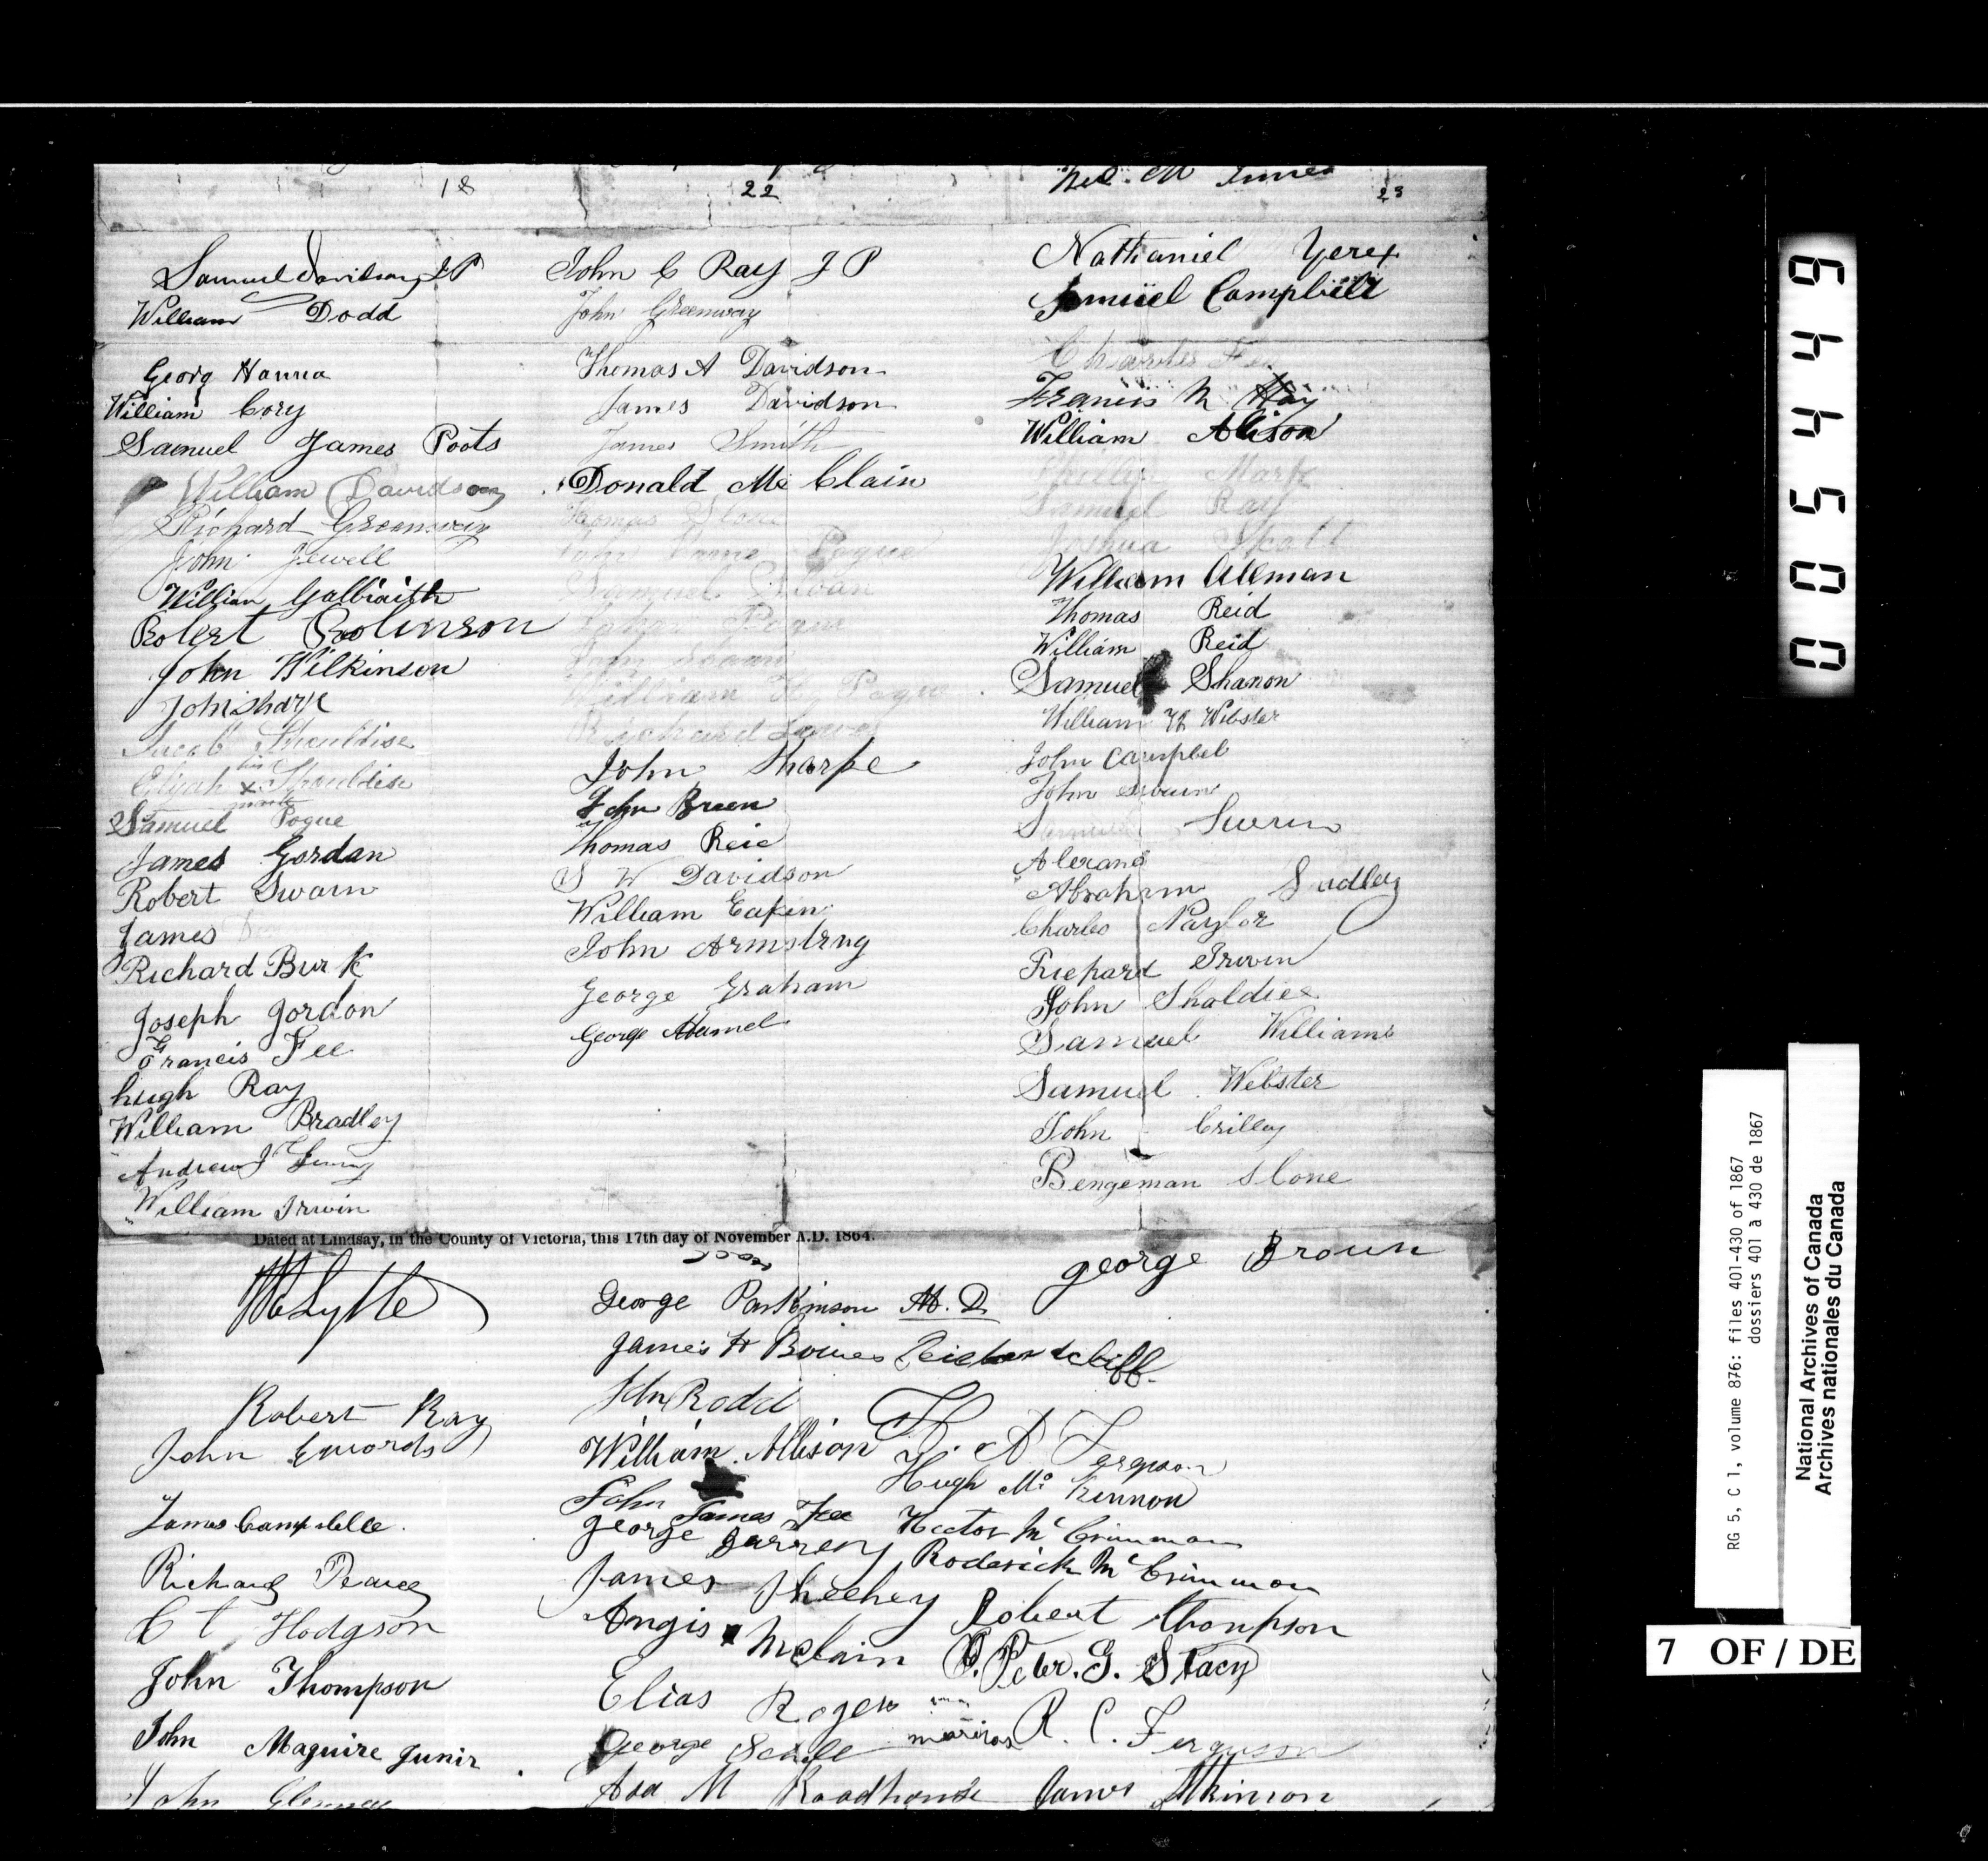 18
22
Mc Innes
23
Samuel Davidson J P
William Dodd
Georg Hanna
William Cory
Samuel James Poots
William Davidson
Richard Greenway
John Jewell
William Galbraith
Robert Robinson
John Wilkinson
John sharpe
Jacob Shouldise
his
Elijah x Shouldise
mark
Samuel Pogue
James Gordan
Robert Swain
James
Richard Burk
Joseph Gordon
Francis Fee
hugh Ray
William Bradley
Andrew J
William Irwin
John C Ray J P
John Greenway
Thomas A Davidson
James Davidson
James Smith
Donald Mc Clain
Thomas Slone
Pogue
Samuel Sloan
Pogue
William H Pogue
Richard
John Sharpe
John Breen
Thomas Reid
S W Davidson
William Eakin
John Armstrng
George Graham
George
Nathaniel Yerex
Samuel Campbell
Charles Fee
Francis M Hay
William Alison
Mark
Samuel Ray
Joshua Skott
William Allman
Thomas Reid
William Reid
Samuel Shanon
William H Webster
John Campbel
John
Samuel
Alexand
Abraham Sudley
Charles Naylor
Richard Irwin
John Sholdice
Samuel Williams
Samuel Webster
John Crilley
Bengeman Slone
Dated at Lindsay, in the County of Victoria, this 17th day of November A.D. 1864.
Lytle
Robert Ray
John Edwords
James Campbelle
Richard Pearce
C t Hodgson
John Thompson
John Maguire Junir
John
George Parkinson M.D
James H Bowes
John Rodd
William Allison
John James Fee
George
James Sheehey
Angis Mclain
Elias Rogers
George
Asa M Roadhouse
george Broun
Ferguson
Hugh Mc Kinnon
Hector Mc Crimmon
Roderick Mc Crimmon
Robert thompson
Peter. G. Stacy
R. C. Ferguson
James Atkinson
005449
RG 5, C 1, volume 876: files 401-430 of 1867
dossiers 401 à 430 de 1867
National Archives of Canada
Archives nationales du Canada
7 OF / DE